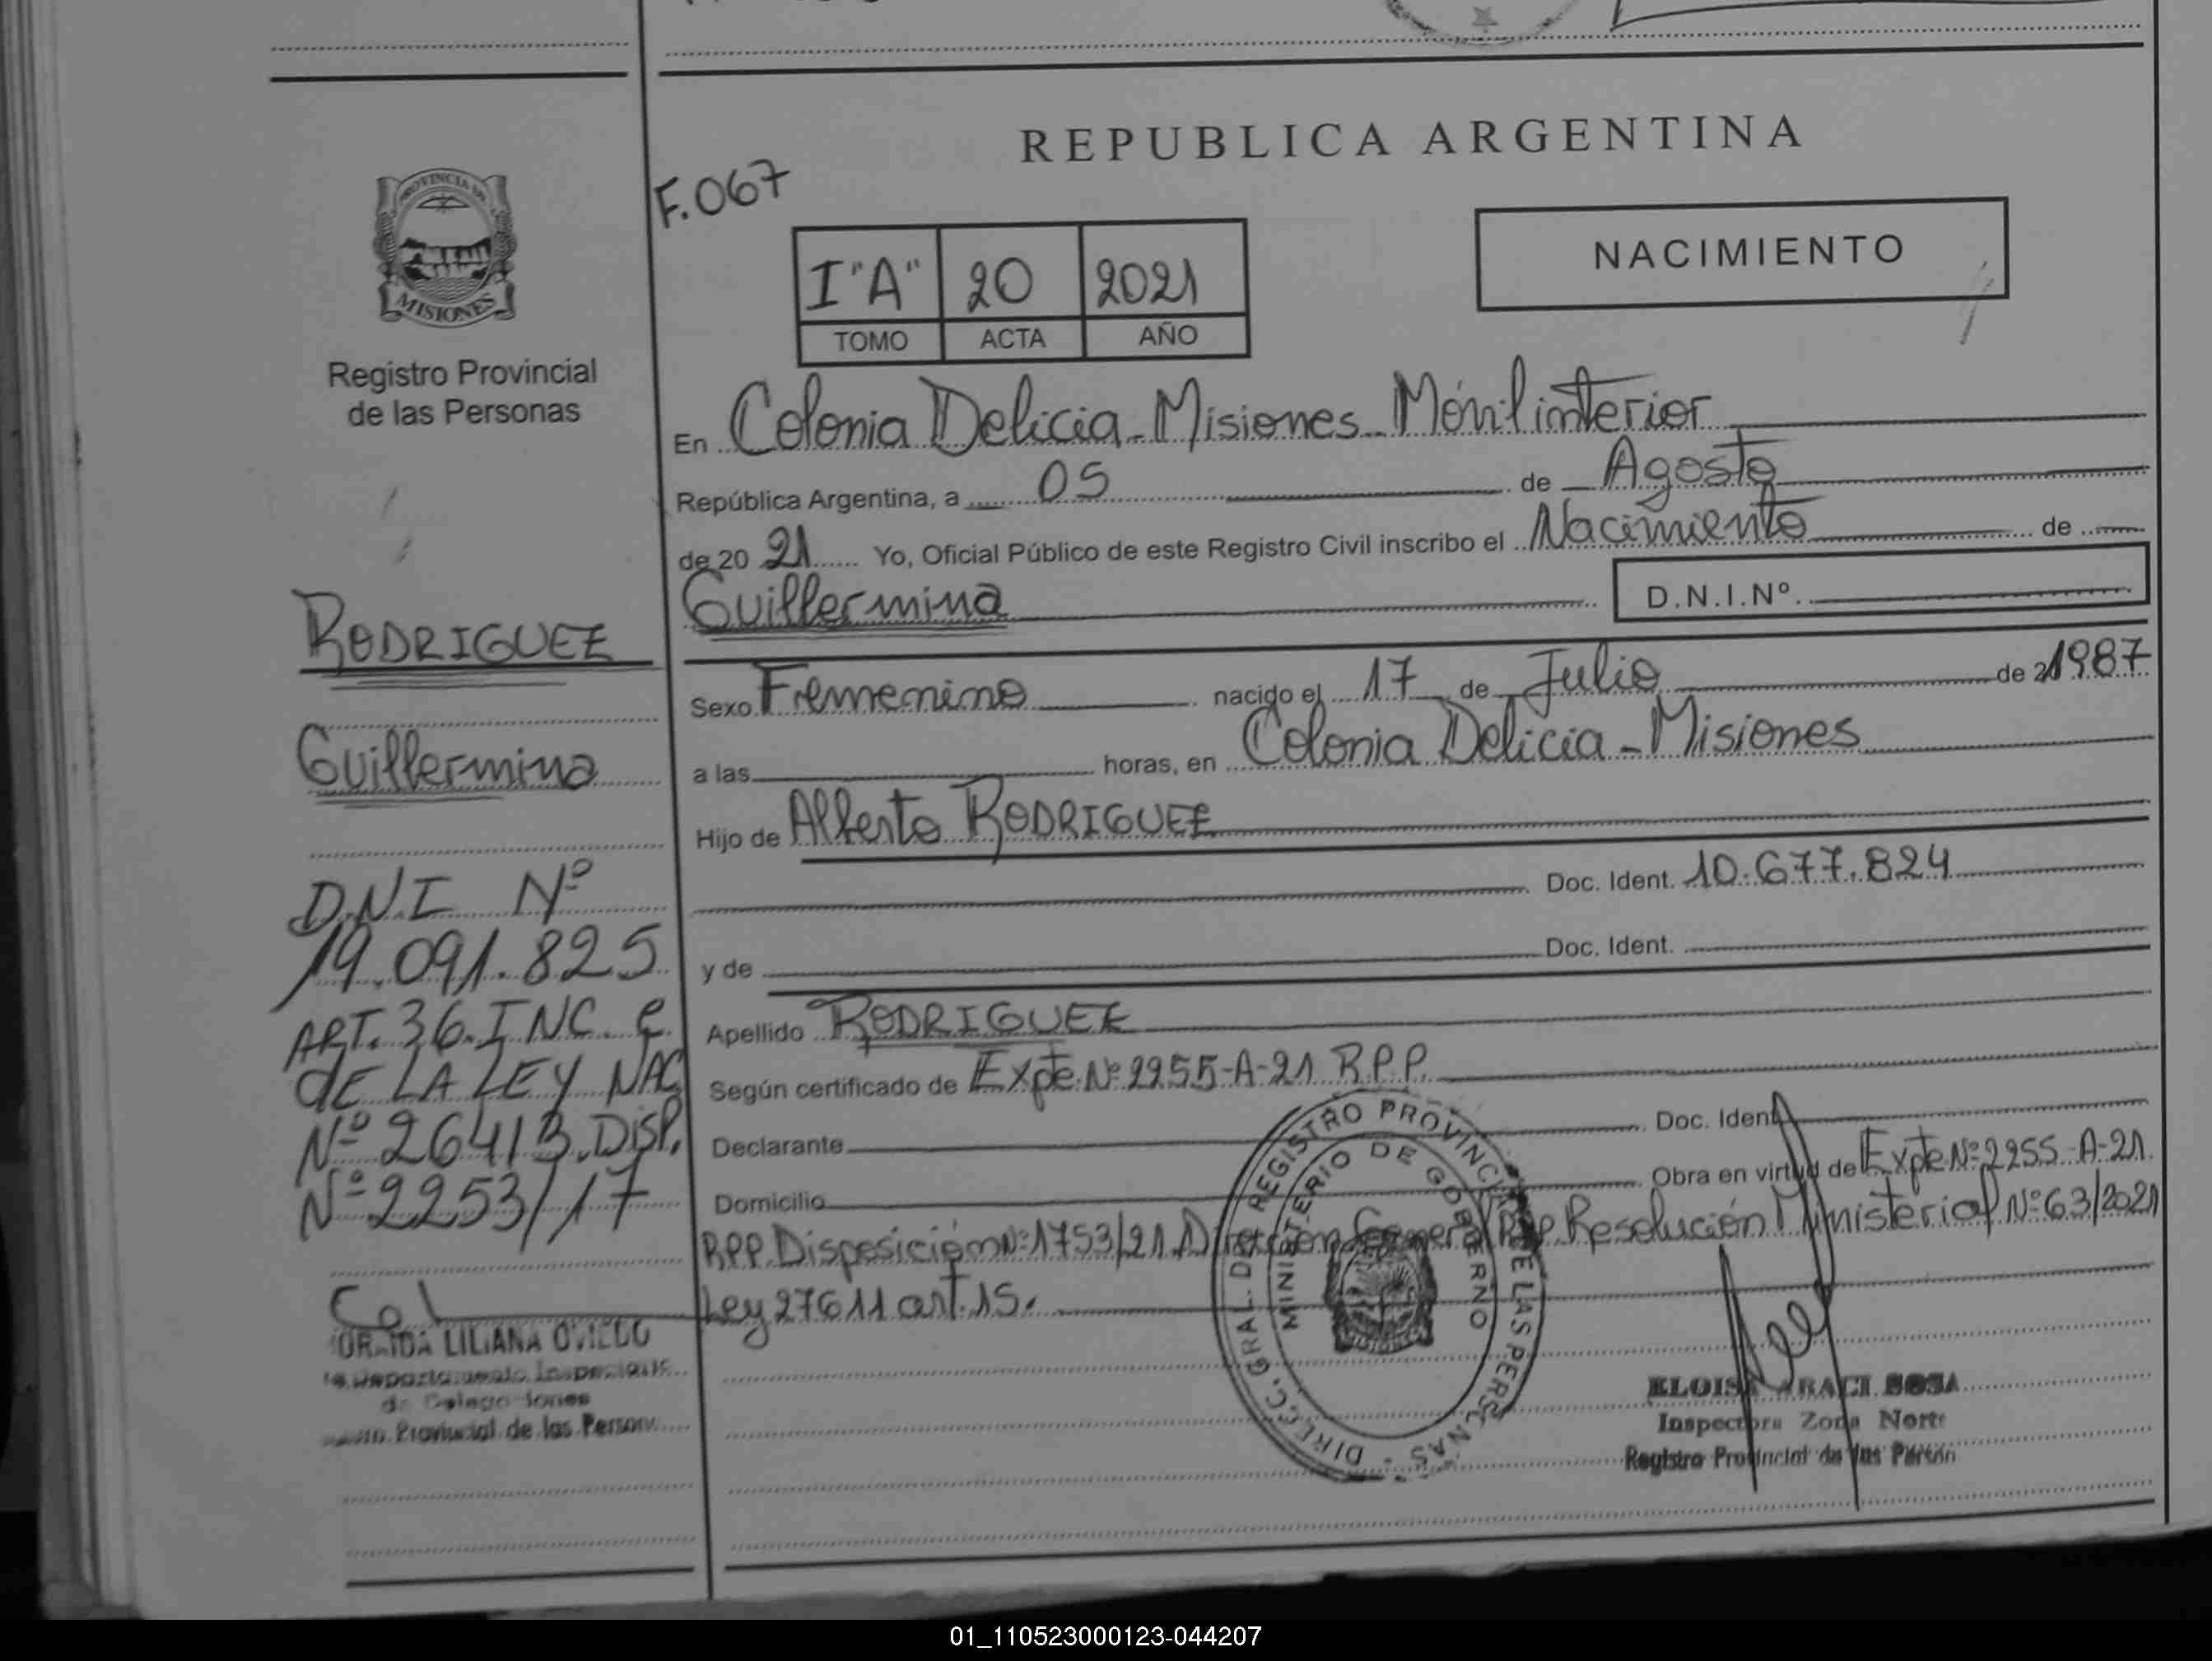 REPUBLICA ARGENTINA
F.067
I "A" 20 2021
TOMO ACTA AÑO
NACIMIENTO
PROVINCIA DE
MISIONES
Registro Provincial
de las Personas
RODRIGUEZ
Guillermina
D.N.I Nº
19.091.825
ART. 36. INC. e
dE LA LEY NAC
Nº 26413. DISP.
Nº 2253/17
LILIANA OVIEDO
Departamento
Provincial de las Person
En Colonia Delicia - Misiones - Móvil interior
República Argentina, a 05 de Agosto
de 20 21 Yo, Oficial Público de este Registro Civil inscribo el Nacimiento de
Guillermina D.N.I.Nº.
Sexo Femenino nacido el 17 de Julio de 21987
a las horas, en Colonia Delicia - Misiones
Hijo de Alberto RODRIGUEZ
Doc. Ident. 10.677.824
y de Doc. Ident.
Apellido RODRIGUEZ
Según certificado de Expte. Nº 2255-A-21 R.P.P.
Declarante Doc. Ident
Domicilio Obra en virtud de Expte Nº 2255-A-21
RPP. Disposición Nº 1753/21. Dirección General RPP. Resolución Ministerial Nº 63/2021
Ley 27611 art. 15.
DIRECC. GRAL. DEL REGISTRO PROVINCIAL DE LAS PERSONAS -
MINISTERIO DE GOBIERNO
ELOISA ARACI SOSA
Inspectora Zona Norte
Registro Provincial de las Person
01_110523000123-044207